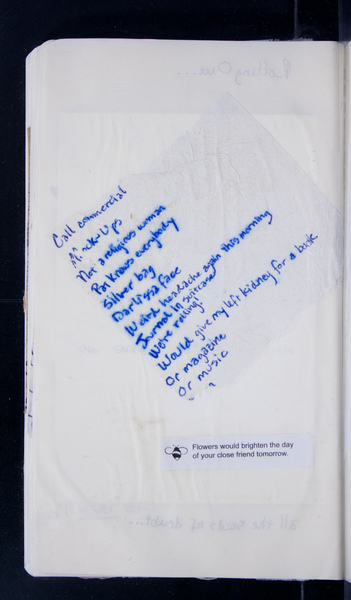 Call commercial
Mock-Ups
Not a religious woman
Pat knows everybody
Silver bag
Darlissa face
Weird headache again this morning
Journal in suitcase?
We're rolling!
Would give my left kidney for a book
Or magazine
Or music
Flowers would brighten the day
of your close friend tomorrow.
all the seeds of doubt...